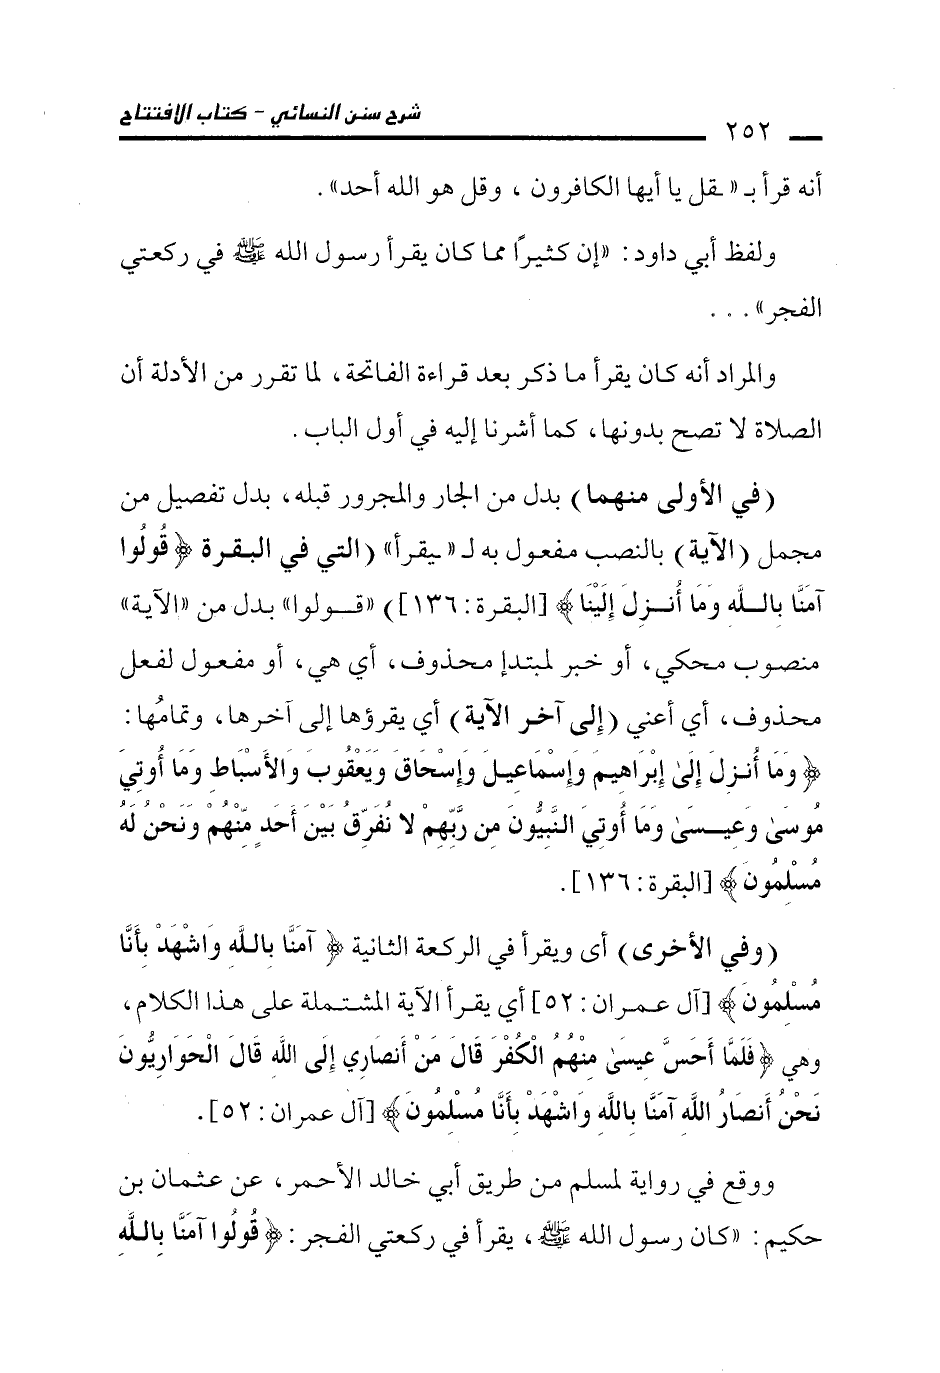 شرح سنن النسائي - كتاب الافتتاح
٢٥٢
أنه قرأ بـ «ـقل يا أيها الكافرون ، وقل هو الله أحد» .
ولفظ أبي داود : «إن كثيرًا مما كان يقرأ رسول الله ﷺ في ركعتي
الفجر» . . .
والمراد أنه كان يقرأ ما ذكر بعد قراءة الفاتحة ، لما تقرر من الأدلة أن
الصلاة لا تصح بدونها ، كما أشرنا إليه في أول الباب .
(في الأولى منهما) بدل من الجار والمجرور قبله ، بدل تفصيل من
مجمل (الآية) بالنصب مفعول به لـ «ـيقرأ» (التي في البقرة ﴿ قُولُوا
آمَنَّا بِاللَّهِ وَمَا أُنزِلَ إِلَيْنَا ﴾ [البقرة : ١٣٦]) «قولوا» بدل من «الآية»
منصوب محكي ، أو خبر لمبتدإ محذوف ، أي هي ، أو مفعول لفعل
محذوف ، أي أعني (إلى آخر الآية) أي يقرؤها إلى آخرها ، وتمامُها :
﴿ وَمَا أُنزِلَ إِلَىٰ إِبْرَاهِيمَ وَإِسْمَاعِيلَ وَإِسْحَاقَ وَيَعْقُوبَ وَالأَسْبَاطِ وَمَا أُوتِيَ
مُوسَىٰ وَعِيسَىٰ وَمَا أُوتِيَ النَّبِيُّونَ مِن رَّبِّهِمْ لا نُفَرِّقُ بَيْنَ أَحَدٍ مِّنْهُمْ وَنَحْنُ لَهُ
مُسْلِمُونَ ﴾ [البقرة : ١٣٦] .
(وفي الأخرى) أى ويقرأ في الركعة الثانية ﴿ آمَنَّا بِاللَّهِ وَاشْهَدْ بِأَنَّا
مُسْلِمُونَ ﴾ [آل عمران : ٥٢] أي يقرأ الآية المشتملة على هذا الكلام ،
وهي ﴿ فَلَمَّا أَحَسَّ عِيسَىٰ مِنْهُمُ الْكُفْرَ قَالَ مَنْ أَنصَارِي إِلَى اللَّهِ قَالَ الْحَوَارِيُّونَ
نَحْنُ أَنصَارُ اللَّهِ آمَنَّا بِاللَّهِ وَاشْهَدْ بِأَنَّا مُسْلِمُونَ ﴾ [آل عمران : ٥٢] .
ووقع في رواية لمسلم من طريق أبي خالد الأحمر ، عن عثمان بن
حكيم : «كان رسول الله ﷺ ، يقرأ في ركعتي الفجر : ﴿ قُولُوا آمَنَّا بِاللَّهِ